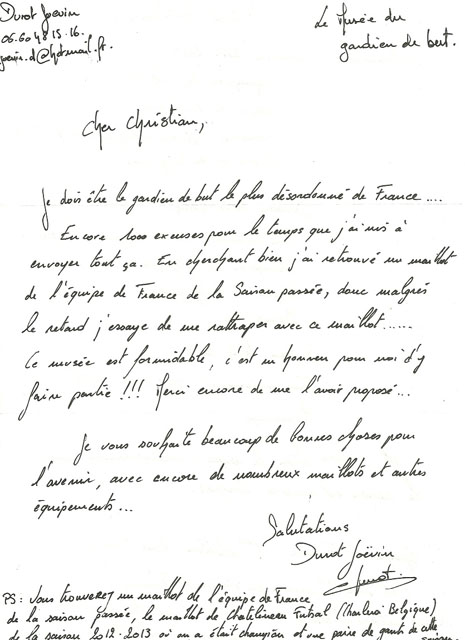 Durot Joëvin
06.60 48 15.16.
joevin.d@hotmail.fr.
Le Musée du
gardien de but.
Cher Christian,
Je dois être le gardien de but le plus désordonné de France ....
Encore 1000 excuses pour le temps que j'ai mis à
envoyer tout ça. En cherchant bien j'ai retrouvé un maillot
de l'équipe de France de la Saison passée, donc malgrés
le retard j'essaye de me rattraper avec ce maillot......
Ce musée est formidable, c'est un honneur pour moi d'y
faire partie !!! Merci encore de me l'avoir proposé...
Je vous souhaite beaucoup de bonnes choses pour
l'avenir, avec encore de nombreux maillots et autres
équipements...
Salutations
Durot Joëvin
PS: Vous trouverez un maillot de l'équipe de France
de la saison passée, le maillot de Chatelineau Futsal (Charleroi Belgique)
de la saison 2012-2013 où on a était champion et une paire de gants de cette
saison